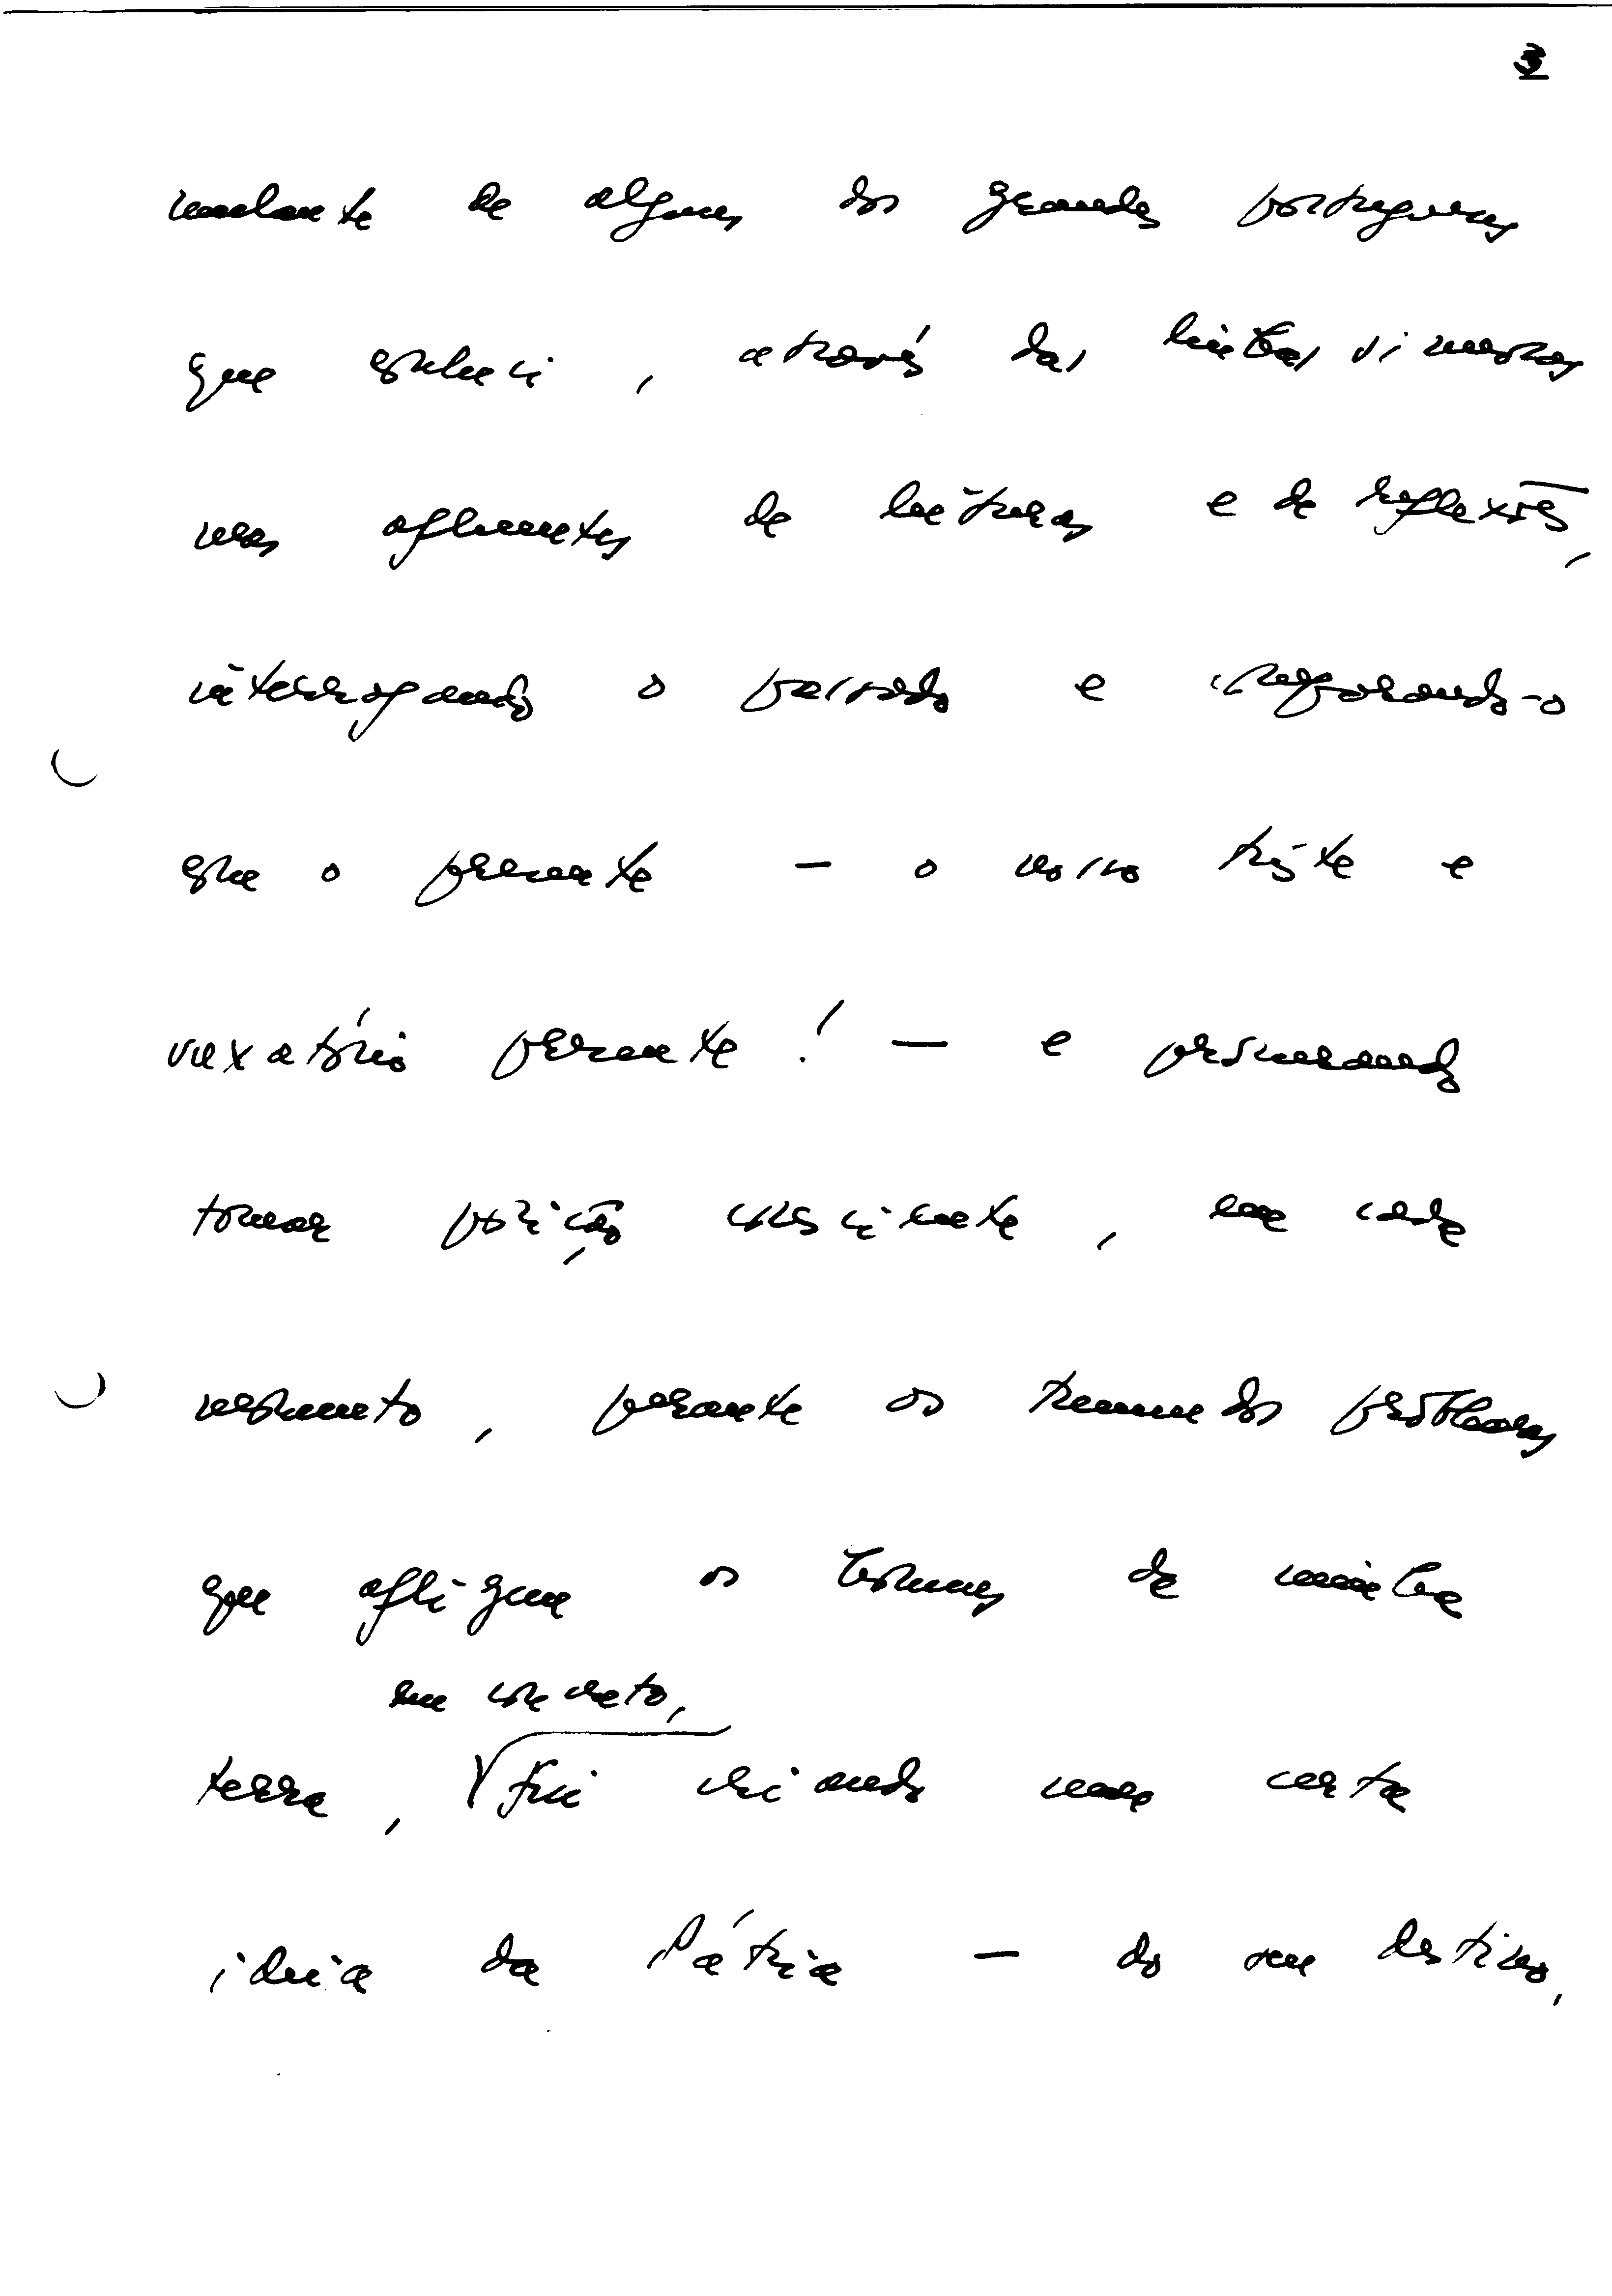 3
mulante de alguns dos grandes portugueses
que conheci, através das linhas sinuosas
nas afluentes de leituras e de reflexões,
interrogando o passado e comparando-o
com o presente — o nosso triste e
vexatório presente! — e procurando
tomar posição consciente, em cada
momento, perante os tremendos problemas
que afligem os homens de minha
em concreto,
terra, fui criando uma certa
ideia da Pátria — do seu destino,